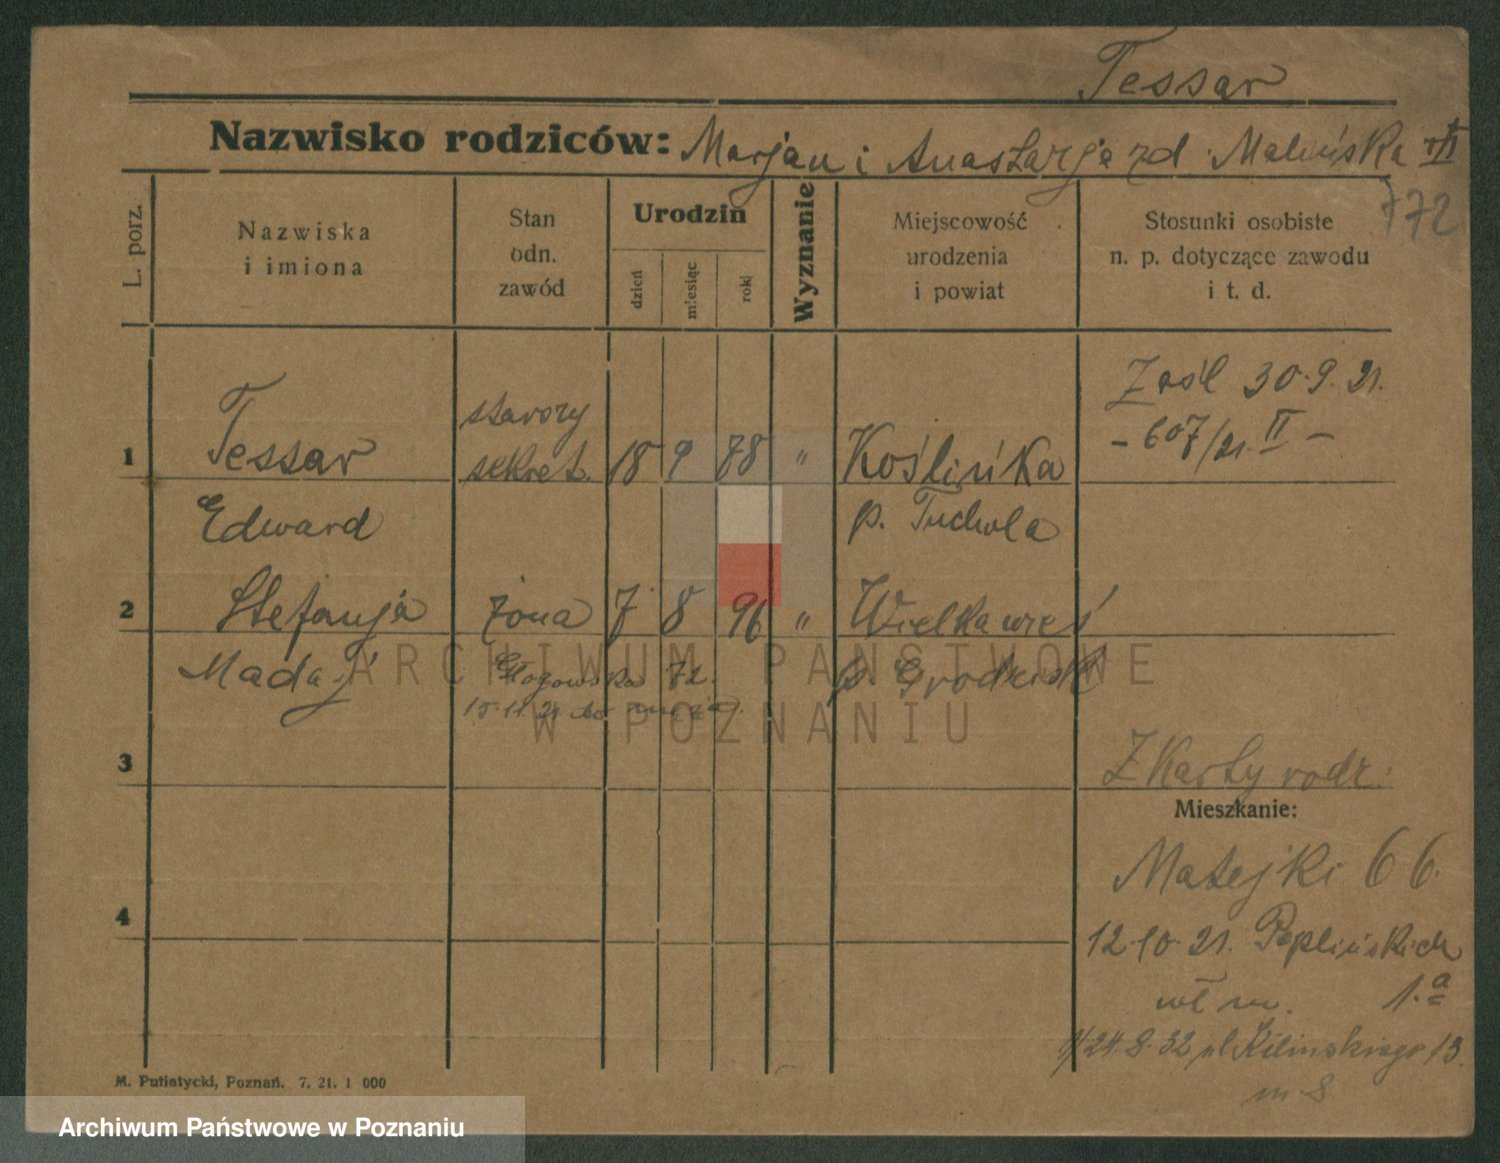 Tessar
Nazwisko rodziców: Marjan i Anastazja zd. Malińska
772
L. porz.
Nazwiska
i imiona
Stan
odn.
zawód
Urodzin
dzień
miesiąc
rok
Wyznanie
Miejscowość
urodzenia
i powiat
Stosunki osobiste
n. p. dotyczące zawodu
i t. d.
Zaśl 30.9.21.
- 607/21. II -
1
Tessar
starszy
sekret.
18 9 78 " Koślinka
Edward
p. Tuchola
2
Stefanja żona 7. 8 96 " Wielkawieś
Madaj
Głogowska 72.
p. Grodzisk
15.11.21 do męża.
ARCHIWUM PAŃSTWOWE
W POZNANIU
3
Z Karty rodz.
Mieszkanie:
Matejki 66.
4
12.10.21. Peplińskich
wł m. 1.a
24.8.32 pl Kilińskiego 13
m 8
M. Putiatycki, Poznań. 7. 21. 1 000
Archiwum Państwowe w Poznaniu